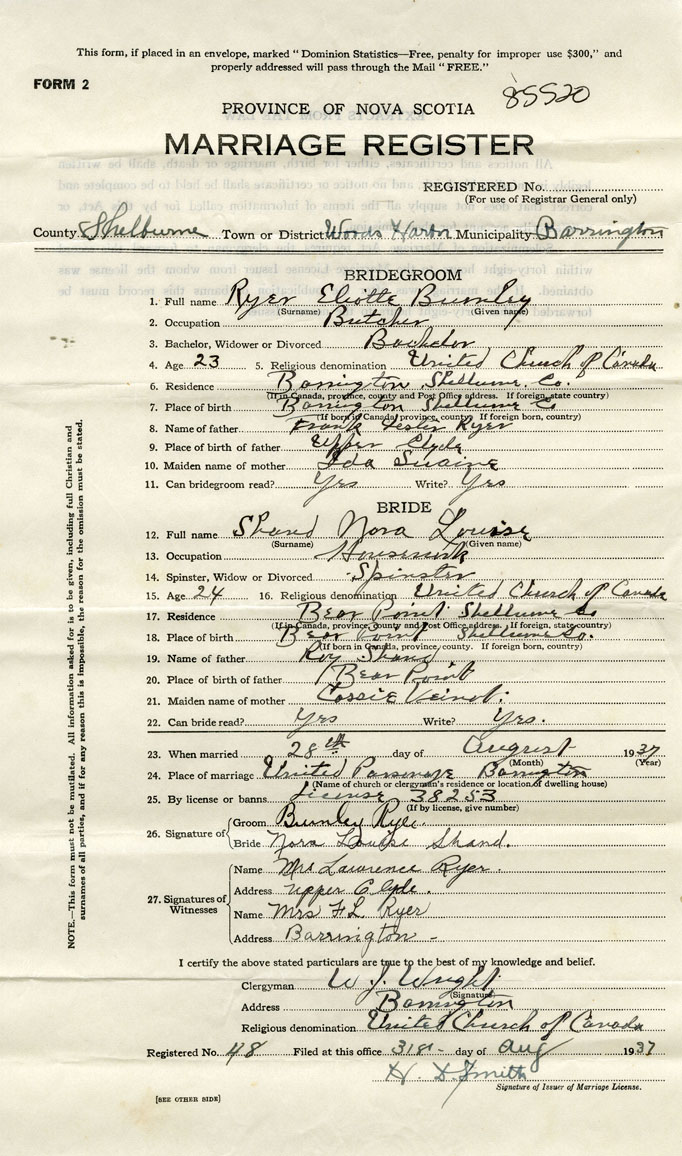 This form, if placed in an envelope, marked "Dominion Statistics—Free, penalty for improper use $300," and
properly addressed will pass through the Mail "FREE."
FORM 2
85520
PROVINCE OF NOVA SCOTIA
MARRIAGE REGISTER
REGISTERED No.
(For use of Registrar General only)
County Shelburne Town or District Woods Harbor Municipality Barrington
BRIDEGROOM
1. Full name Ryer Eliotte Burnley
(Surname) (Given name)
2. Occupation Butcher
3. Bachelor, Widower or Divorced Bachelor
4. Age 23 5. Religious denomination United Church of Canada
6. Residence Barrington Shelburne Co.
(If in Canada, province, county and Post Office address. If foreign, state country)
7. Place of birth Barrington Shelburne Co
(If born in Canada, province, county. If foreign born, country)
8. Name of father Frank Lester Ryer
9. Place of birth of father Upper Clyde
10. Maiden name of mother Ida Swaine
11. Can bridegroom read? Yes Write? Yes
BRIDE
12. Full name Shand Nora Louise
(Surname) (Given name)
13. Occupation Housework
14. Spinster, Widow or Divorced Spinster
15. Age 24 16. Religious denomination United Church of Canada
17. Residence Bear Point Shelburne Co
(If in Canada, province, county and Post Office address. If foreign, state country)
18. Place of birth Bear Point Shelburne Co.
(If born in Canada, province, county. If foreign born, country)
19. Name of father Roy Shand
20. Place of birth of father Bear Point
21. Maiden name of mother Cassie
22. Can bride read? Yes Write? Yes.
23. When married 28th day of August 1937
(Month) (Year)
24. Place of marriage United Parsonage Barrington
(Name of church or clergyman's residence or location of dwelling house)
25. By license or banns License 38253
(If by license, give number)
26. Signature of
Groom Burnley Ryer
Bride Nora Louise Shand.
27. Signatures of Witnesses
Name Mrs Lawrence Ryer.
Address Upper Clyde.
Name Mrs F L Ryer
Address Barrington -
I certify the above stated particulars are true to the best of my knowledge and belief.
Clergyman W. J. Wright
(Signature)
Address Barrington
Religious denomination United Church of Canada
Registered No. 48 Filed at this office 31st day of Aug 1937
H D Smith
Signature of Issuer of Marriage License.
[SEE OTHER SIDE]
NOTE.—This form must not be mutilated. All information asked for is to be given, including full Christian and
surnames of all parties, and if for any reason this is impossible, the reason for the omission must be stated.